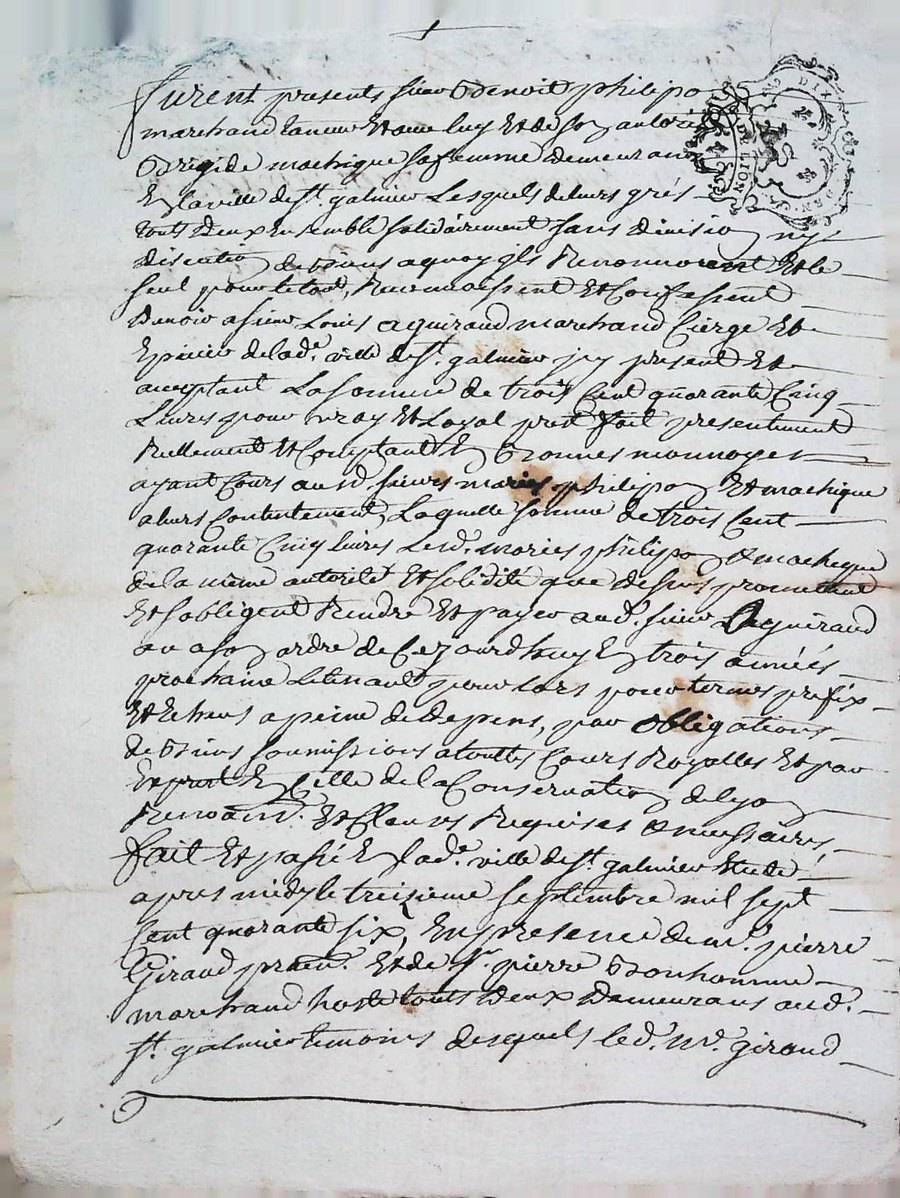 furent presents sieur Benoit philipon
marchand taneur Et avec luy Et de son autorité
Brigide machique sa femme demeurans
En la ville de st. galmier Lesquels de leurs grés
touts deux Ensemble solidairement sans division ny
discution de biens a quoy yls Renonceront Et le
seul pour le tout, Reconnoissent Et Confessent
Devoir a sieur Louis aguiraud marchand Cierge Et
Epicier de lade. ville de st. galmier jcy present Et
acceptant La somme de trois Cent quarante Cinq
Livres pour vray Et Loyal pret fait presentement
Reellement Et Comptant En Bonnes monnoyes
ayant Cours aud sieurs mariés philipon Et machique
a leurs Contentement, Laquelle somme de trois Cent
quarante Cinq livres Lesd. mariés philipon & machique
de la même autorité Et solidité que dessus promettent
Et s'obligent Rendre Et payer aud. sieur aguiraud
ou a son ordre de Ce jourdhuy En trois années
prochaine Le tenant pour lors pour termes prefix
Et Echeus a peine de depens, par obligations
de biens soumissions a touttes Cours Royalles Et par
Exprest En Celle de la Conservation de lyon
Renoant. Et Clauses Requises & necessaires
fait Et passé En lade. ville de st. galmier Etude
apres midy le treisieme septembre mil sept
Cent quarante six, En presence de mr. pierre
Giraud praen. Et de sr. pierre Bonhomme
marchand hoste touts deux Demeurans aud.
st. galmier temoins desquels led. mr. giraud